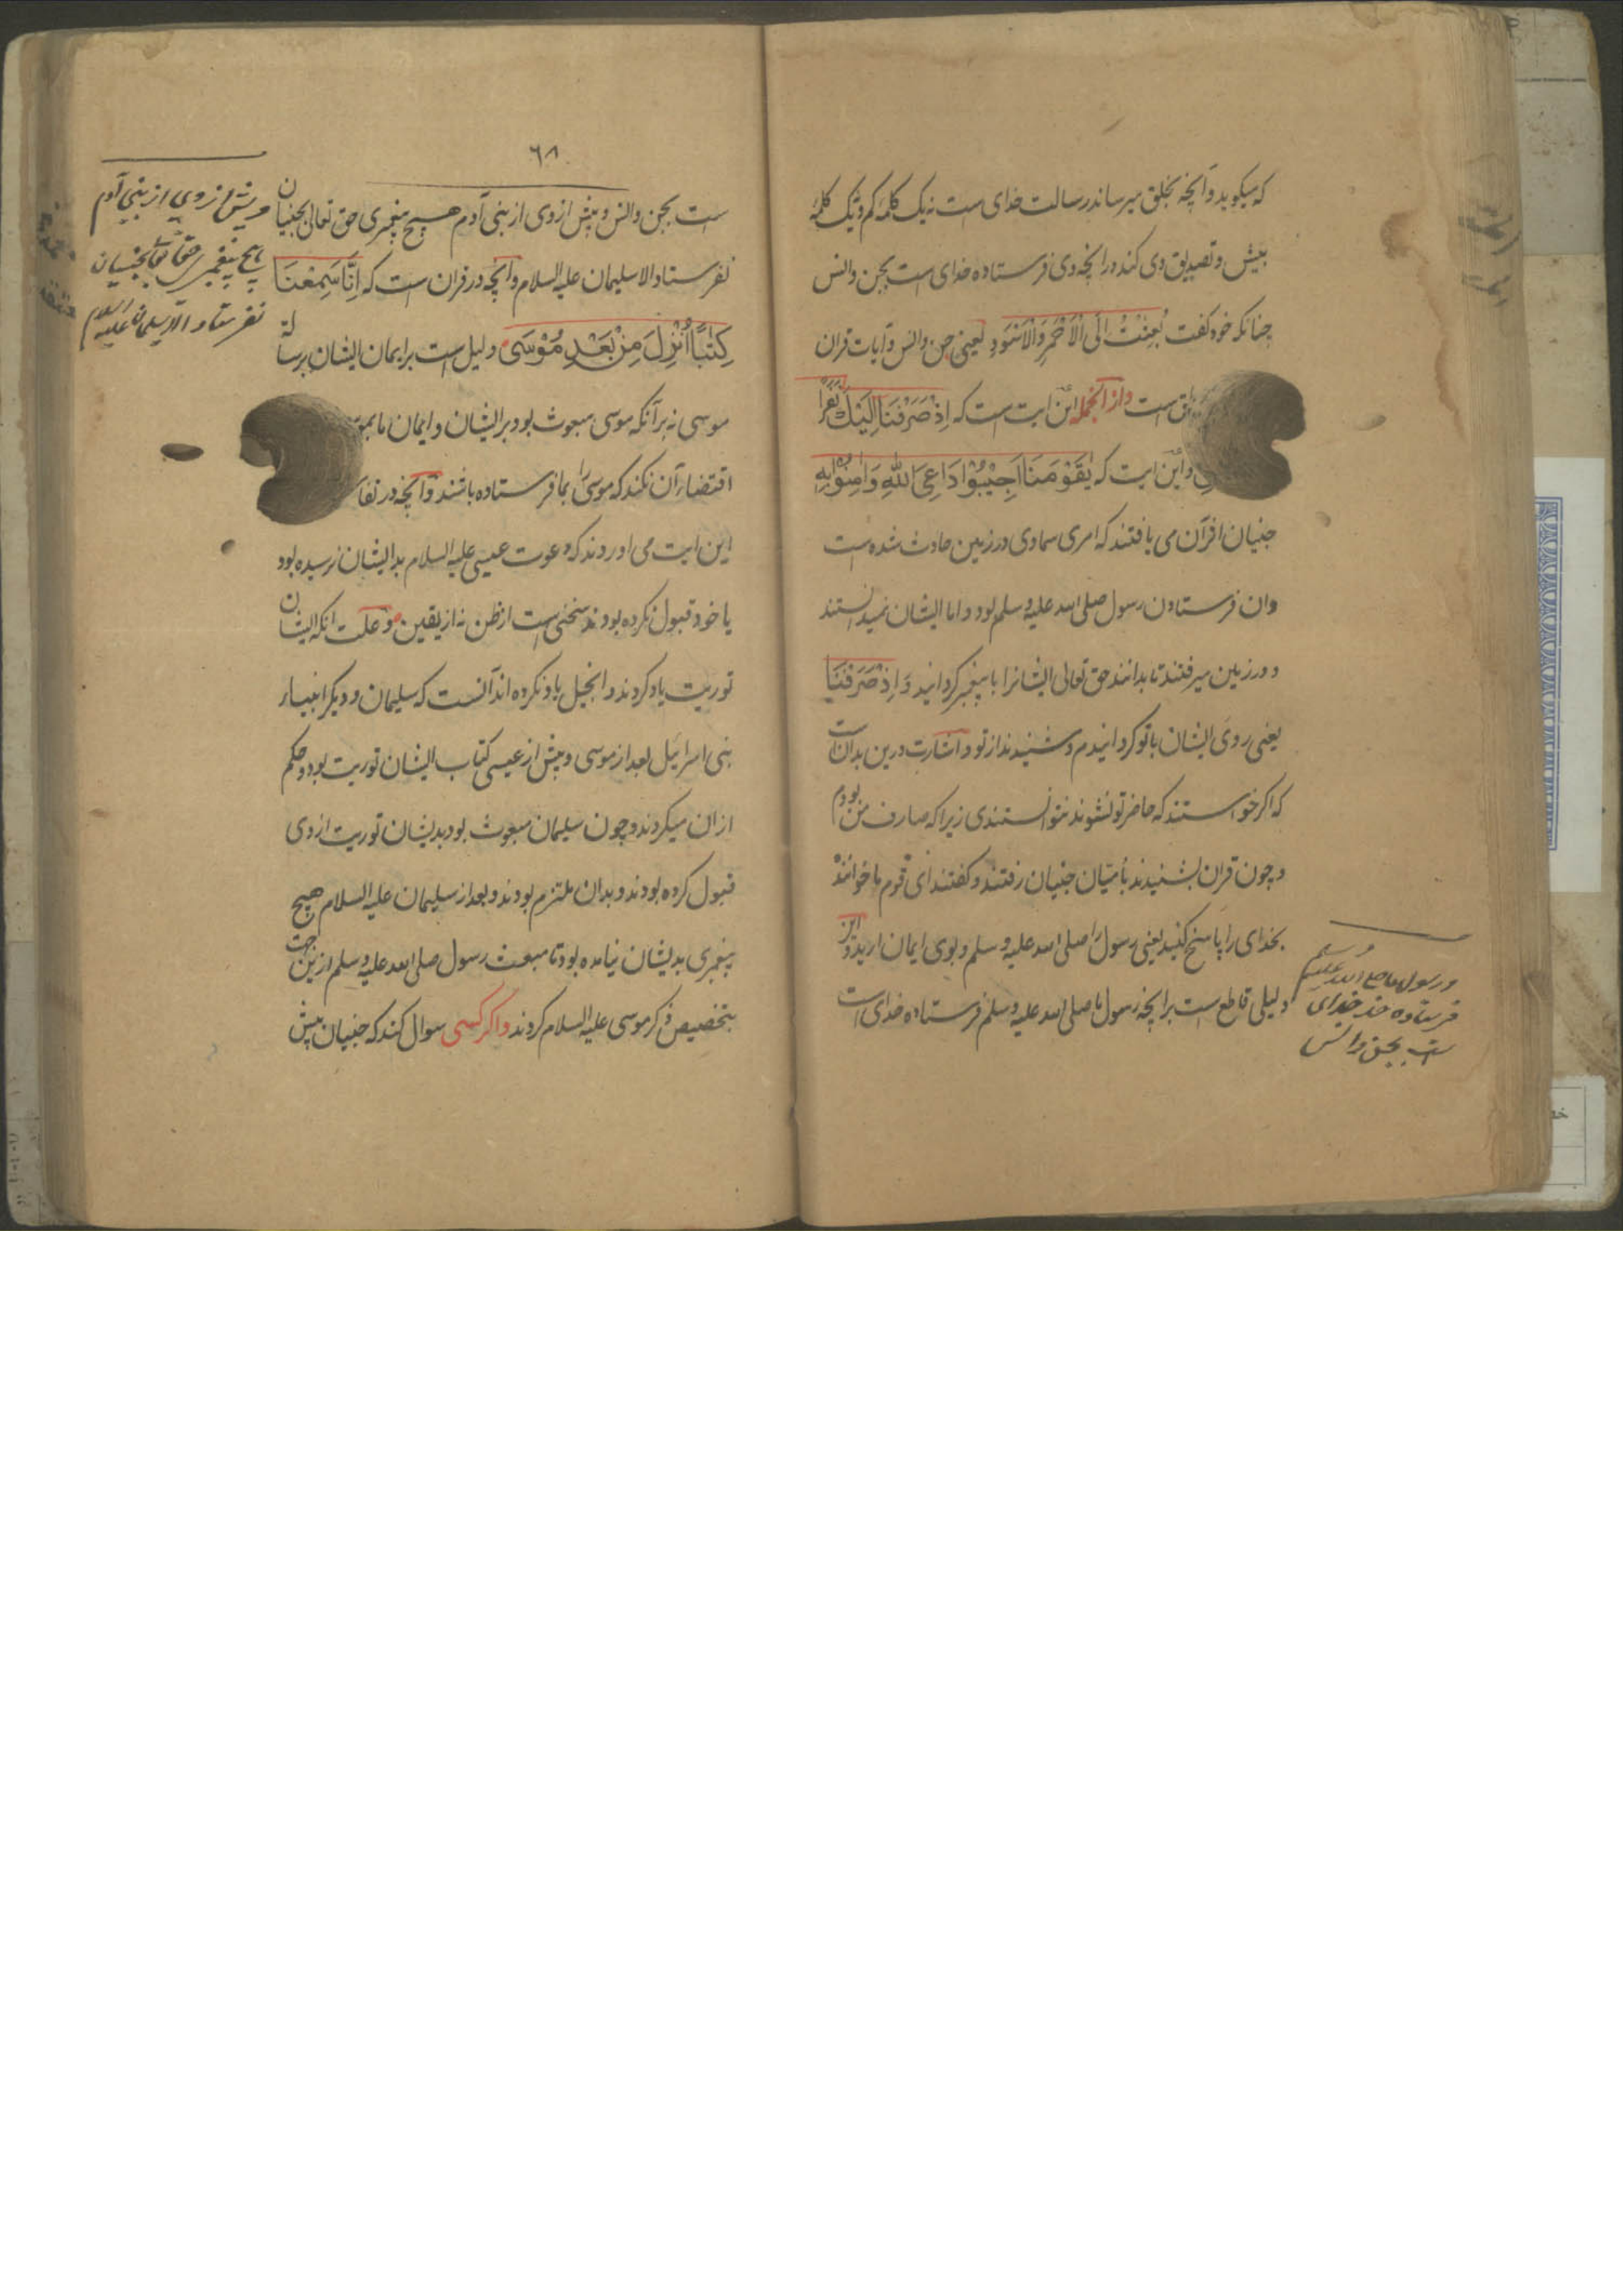 که میکوید و آنچه بخلق میرساند رسالت خدای است نه یک کلمه کم و نه یک کلمه
بیش و تصدیق وی کند در انچه وی فرستاده خدای است بجن و انس
چنانکه خود کفت بُعِثْتُ اِلَی الْاَحْمَرِ وَالْاَسْوَدِ یعنی جن و انس و آیات قران
است و از انجمله این ایت است که اِذْ صَرَفْنَا اِلَیْكَ نَفَرًا
و این ایت که یٰقَوْمَنَا اَجِیْبُوْا دَاعِیَ اللّٰهِ وَاٰمِنُوْا بِهِ
جنیان از قرآن می یافتند که امری سماوی در زمین حادث شده است
و ان فرستادن رسول صلی الله علیه و سلم بود و اما ایشان نمیدانستند
و در زمین میرفتند تا بدانند حق تعالی ایشانرا با پیغمبر کردانید وَ اِذْ صَرَفْنَا
یعنی روی ایشان با تو کردانیدم و شنیدند از تو و اشارت درین بدان است
که اکر خواستند که حاضر تو نشوند نتوانستندی زیرا که صارف من بودم
و چون قران بشنیدند بامیان جنیان رفتند و کفتند ای قوم ما خوانندهٔ
بخدای را پاسخ کنید یعنی رسول را صلی الله علیه و سلم و بوی ایمان ارید و این
دلیلی قاطع است بر انچه رسول ما صلی الله علیه و سلم فرستاده خدای است
و رسول ما صلی الله علیه و سلم
فرستاده خدای
است بجن و انس
٦٨
است بجن و انس و پیش از وی از بنی آدم هیچ پیغمبری حق تعالی بجنیان
نفرستاد الا سلیمان علیه السلام و آنچه در قران است که اِنَّا سَمِعْنَا
کِتٰبًا اُنْزِلَ مِنْ بَعْدِ مُوْسٰی دلیل است بر ایمان ایشان برسالة
موسی نه بر آنکه موسی مبعوث بود بر ایشان و ایمان ما
اقتضاء آن نکند که موسی را بما فرستاده باشند و آنچه در
این ایت می اوردند که دعوت عیسی علیه السلام بدایشان نرسیده بود
یا خود قبول نکرده بودند سخنی است از ظن نه از یقین و علت انکه ایشان
توریت یاد کردند و انجیل یاد نکرده اند آنست که سلیمان و دیکر انبیاء
بنی اسرائیل بعد از موسی و پیش از عیسی کتاب ایشان توریت بود و حکم
از ان میکردند و چون سلیمان مبعوث بود بدیشان توریت از وی
قبول کرده بودند و بدان ملتزم بودند و بعد از سلیمان علیه السلام هیچ
پیغمبری بدیشان نیامده بود تا مبعث رسول صلی الله علیه و سلم ازین جهت
بتخصیص ذکر موسی علیه السلام کردند و اکر کسی سوال کند که جنیان پیش
و پیش از وی از بنی آدم
هیچ پیغمبر حق تعالی بجنیان
نفرستاد الا سلیمان علیه السلام